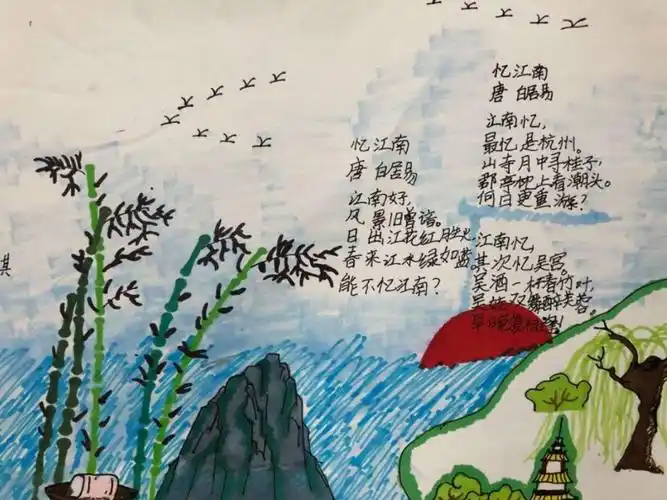 忆江南
唐 白居易
江南好,
风景旧曾谙。
日出江花红胜火,
春来江水绿如蓝。
能不忆江南?
忆江南
唐 白居易
江南忆,
最忆是杭州。
山寺月中寻桂子,
郡亭枕上看潮头。
何日更重游?
江南忆,
其次忆吴宫。
吴酒一杯春竹叶,
吴娃双舞醉芙蓉。
早晚复相逢!
其